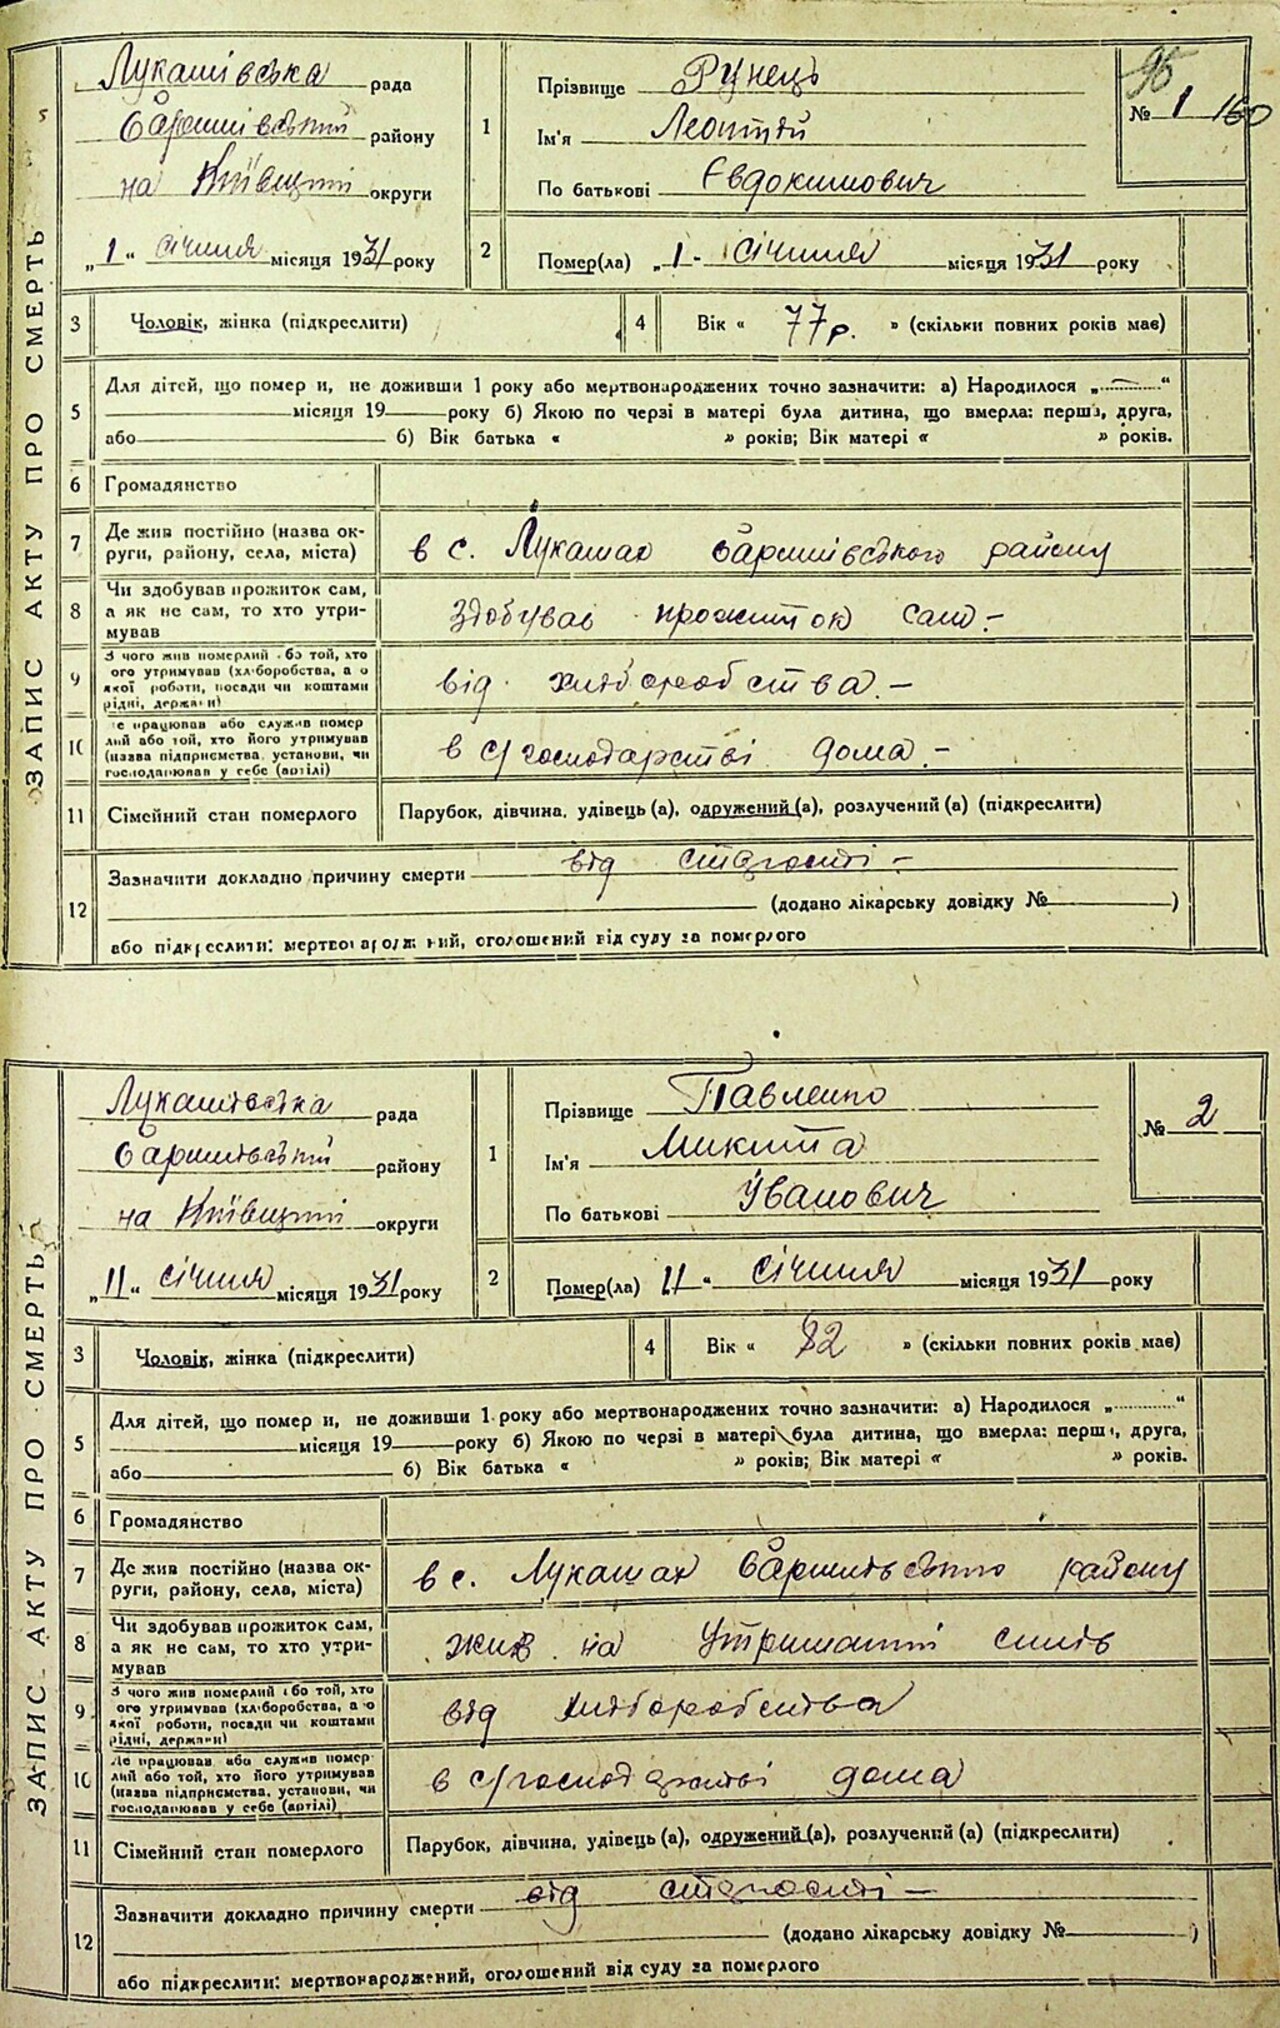 ЗАПИС АКТУ ПРО СМЕРТЬ
Лукашівська рада
Баришівський району
на Київщині округи
„1“ січня місяця 1931 року
1
Прізвище Рунець
Ім'я Леонтій
По батькові Євдокимович
95
№ 1 160
2
Помер(ла) „1 - січня місяця 1931 року
3 Чоловік, жінка (підкреслити)
4 Вік « 77 р. » (скільки повних років має)
5
Для дітей, що помер и, не доживши 1 року або мертвонароджених точно зазначити: а) Народилося „ “
місяця 19 року б) Якою по черзі в матері була дитина, що вмерла: перша, друга,
або б) Вік батька « » років; Вік матері « » років.
6 Громадянство
7
Де жив постійно (назва ок-
руги, району, села, міста)
в с. Лукашах Баришівського району
8
Чи здобував прожиток сам,
а як не сам, то хто утри-
мував
здобував прожиток сам. –
9
З чого жив померлий або той, хто
ого утримував (хліборобства, а о
якої роботи, посади чи коштами
рідні, держави)
від хліборобства. –
10
е працював або служив помер
лий або той, хто його утримував
(назва підприємства, установи, чи
господарював у себе (артілі)
в с/господарстві дома. –
11 Сімейний стан померлого
Парубок, дівчина, удівець (а), одружений (а), розлучений (а) (підкреслити)
12
Зазначити докладно причину смерти від старости –
(додано лікарську довідку № )
або підкреслити: мертвонароджений, оголошений від суду за померлого
ЗАПИС АКТУ ПРО СМЕРТЬ
Лукашівська рада
Баришівський району
на Київщині округи
„11“ січня місяця 1931 року
1
Прізвище Павленко
Ім'я Микита
По батькові Іванович
№ 2
2
Помер(ла) 11 “ січня місяця 1931 року
3 Чоловік, жінка (підкреслити)
4 Вік « 82 » (скільки повних років має)
5
Для дітей, що помер и, не доживши 1 року або мертвонароджених точно зазначити: а) Народилося „ “
місяця 19 року б) Якою по черзі в матері була дитина, що вмерла: перша, друга,
або б) Вік батька « » років; Вік матері « » років.
6 Громадянство
7
Де жив постійно (назва ок-
руги, району, села, міста)
в с. Лукашах Баришівського району
8
Чи здобував прожиток сам,
а як не сам, то хто утри-
мував
жив на утриманні синів
9
З чого жив померлий або той, хто
ого утримував (хліборобства, а о
якої роботи, посади чи коштами
рідні, держави)
від хліборобства
10
Де працював або служив помер
лий або той, хто його утримував
(назва підприємства, установи, чи
господарював у себе (артілі)
в с/господарстві дома
11 Сімейний стан померлого
Парубок, дівчина, удівець (а), одружений (а), розлучений (а) (підкреслити)
12
Зазначити докладно причину смерти від старости –
(додано лікарську довідку № )
або підкреслити: мертвонароджений, оголошений від суду за померлого